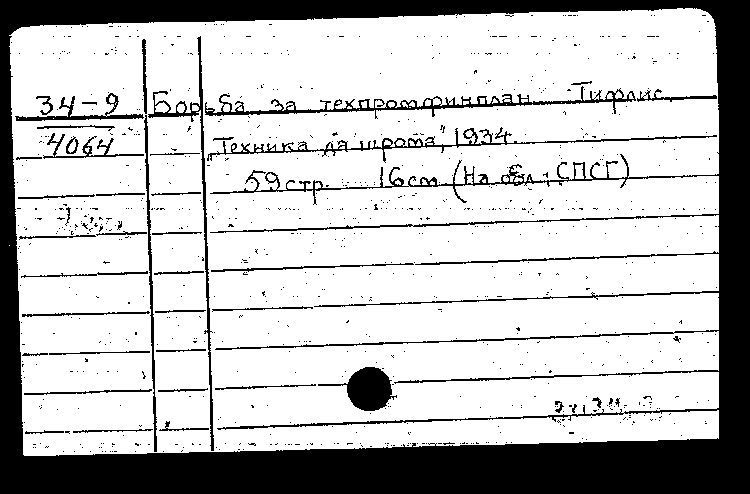 34-9 Борьба за техпромфинплан Тифлис
4064 „Техника да шрома", 1934.
59 стр. 16 см (На обл.: СПСГ)